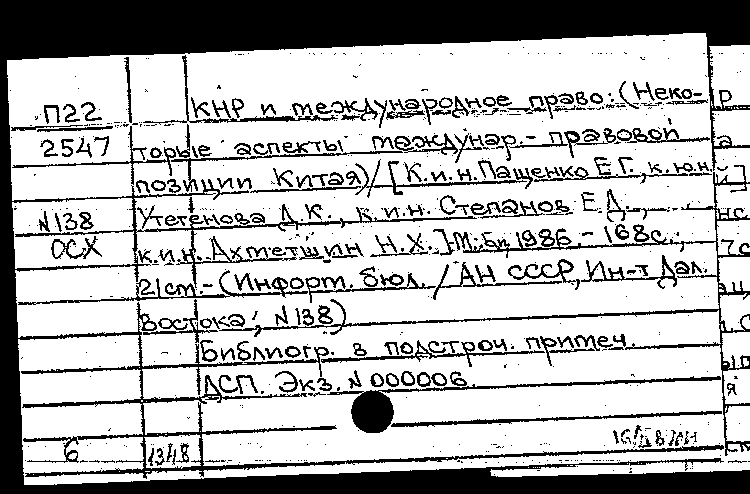 П22 КНР и международное право: (Неко-
2547 торые аспекты междунар.- правовой
позиции Китая)/[К.и.н. Пащенко Е.Г., к.ю.н.
N138 Утегенова Д.К., к.и.н. Степанов Е.Д.,
ОСХ к.и.н. Ахметшин Н.Х.] М.: Би, 1986.- 168с.;
21см.- (Информ. бюл. / АН СССР, Ин-т Дал.
Востока; N138)
Библиогр. в подстроч. примеч.
ДСП. Экз. N 000006.
6 1348